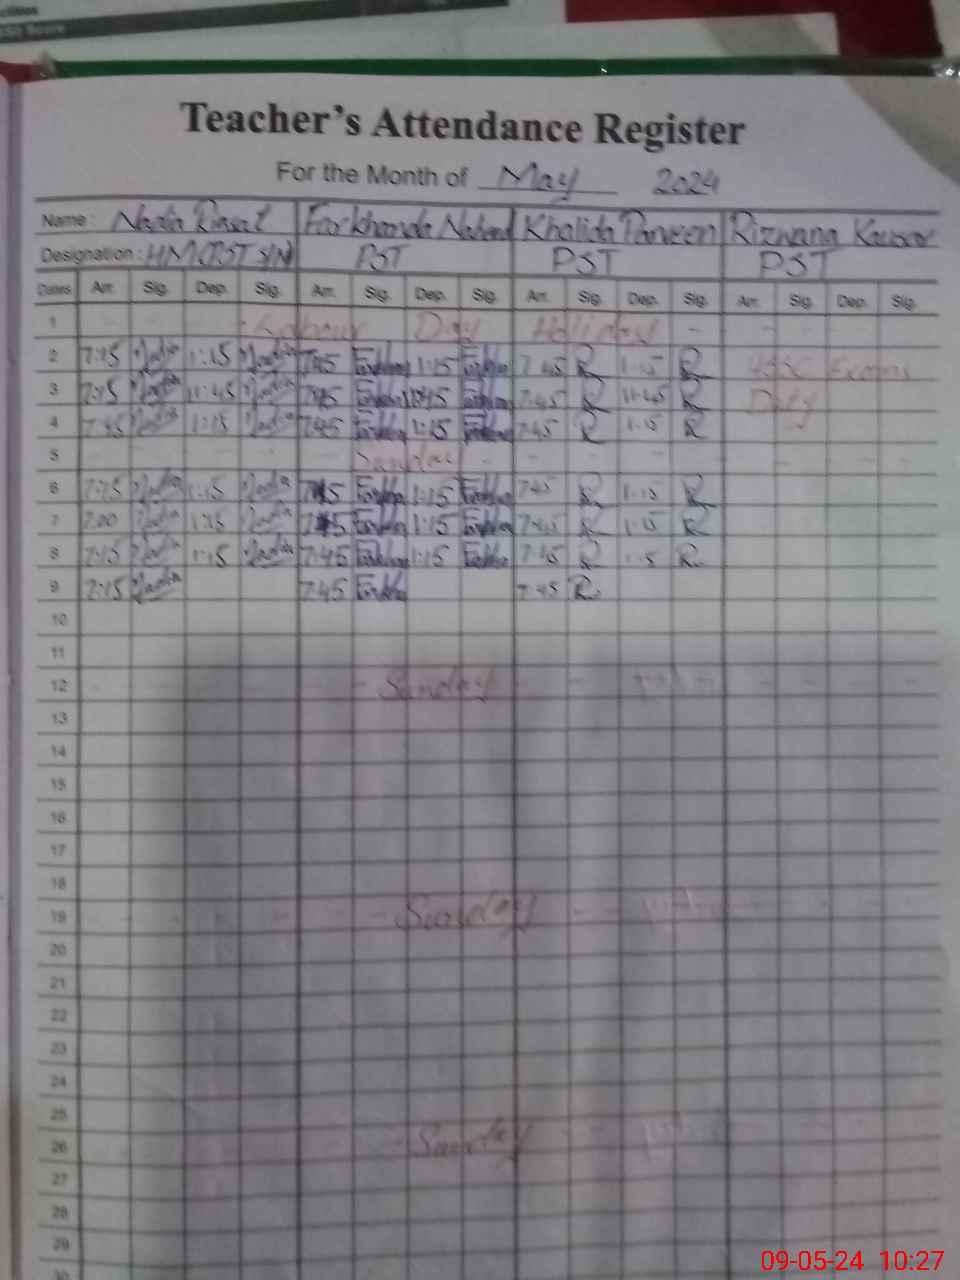 Teacher's Attendance Register
For the Month of May 2024
Name : Nadia Farkhanda Naheed Khalida Parveen Rizwana Kausar
Designation : PST PST PST
Dates Arr. Sig. Dep. Sig. Arr. Sig. Dep. Sig. Arr. Sig. Dep. Sig. Arr. Sig. Dep. Sig.
1 - - - - Labour Day Holiday - - - -
2 7:15 Nadia 1:15 Nadia 7:45 1:15 7:45 R 1:15 R HSSC Exams
3 7:15 Nadia 11:45 Nadia 7:45 11:45 7:45 R 11:45 R Duty
4 7:45 Nadia 1:15 Nadia 7:45 1:15 7:45 R 1:15 R
5 - - - - Sunday - - - - -
6 7:15 Nadia 1:15 Nadia 7:45 1:15 7:45 R 1:15 R
7 7:00 Nadia 1:15 Nadia 7:45 1:15 7:45 R 1:15 R
8 7:15 Nadia 1:15 Nadia 7:45 1:15 7:45 R 1:15 R
9 7:15 Nadia 7:45 7:45 R
10
11
12 - Sunday - -
13
14
15
16
17
18
19 - Sunday - -
20
21
22
23
24
25
26 - Sunday - -
27
28
29
30
09-05-24 10:27